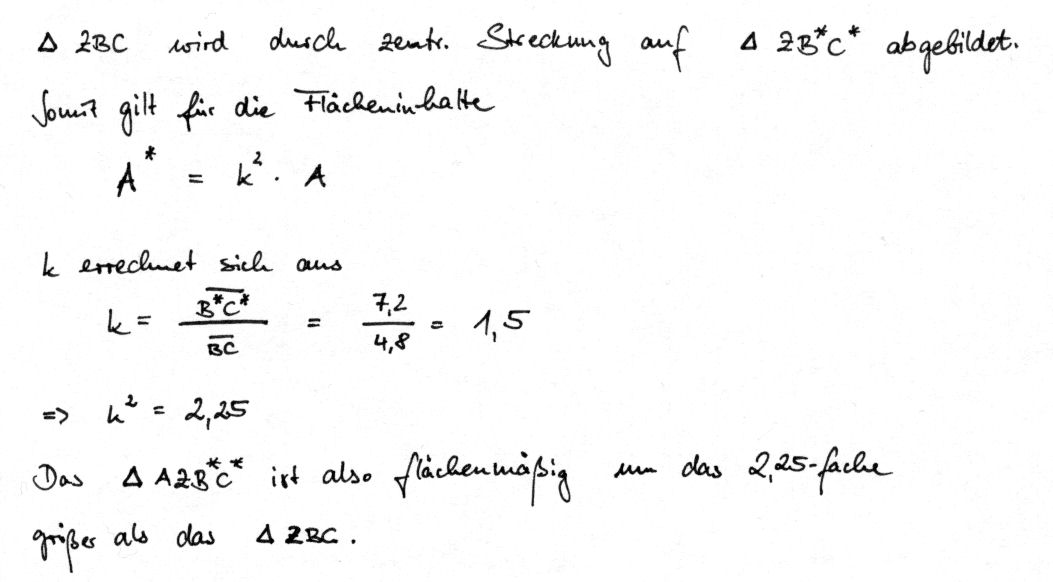 Δ ZBC wird durch zentr. Streckung auf Δ ZB*C* abgebildet.
Somit gilt für die Flächeninhalte
A* = k² · A
k errechnet sich aus
k = \frac{\overline{B^*C^*}}{\overline{BC}} = \frac{7,2}{4,8} = 1,5
=> k² = 2,25
Das Δ AZB*C* ist also flächenmäßig um das 2,25-fache
größer als das Δ ZBC.